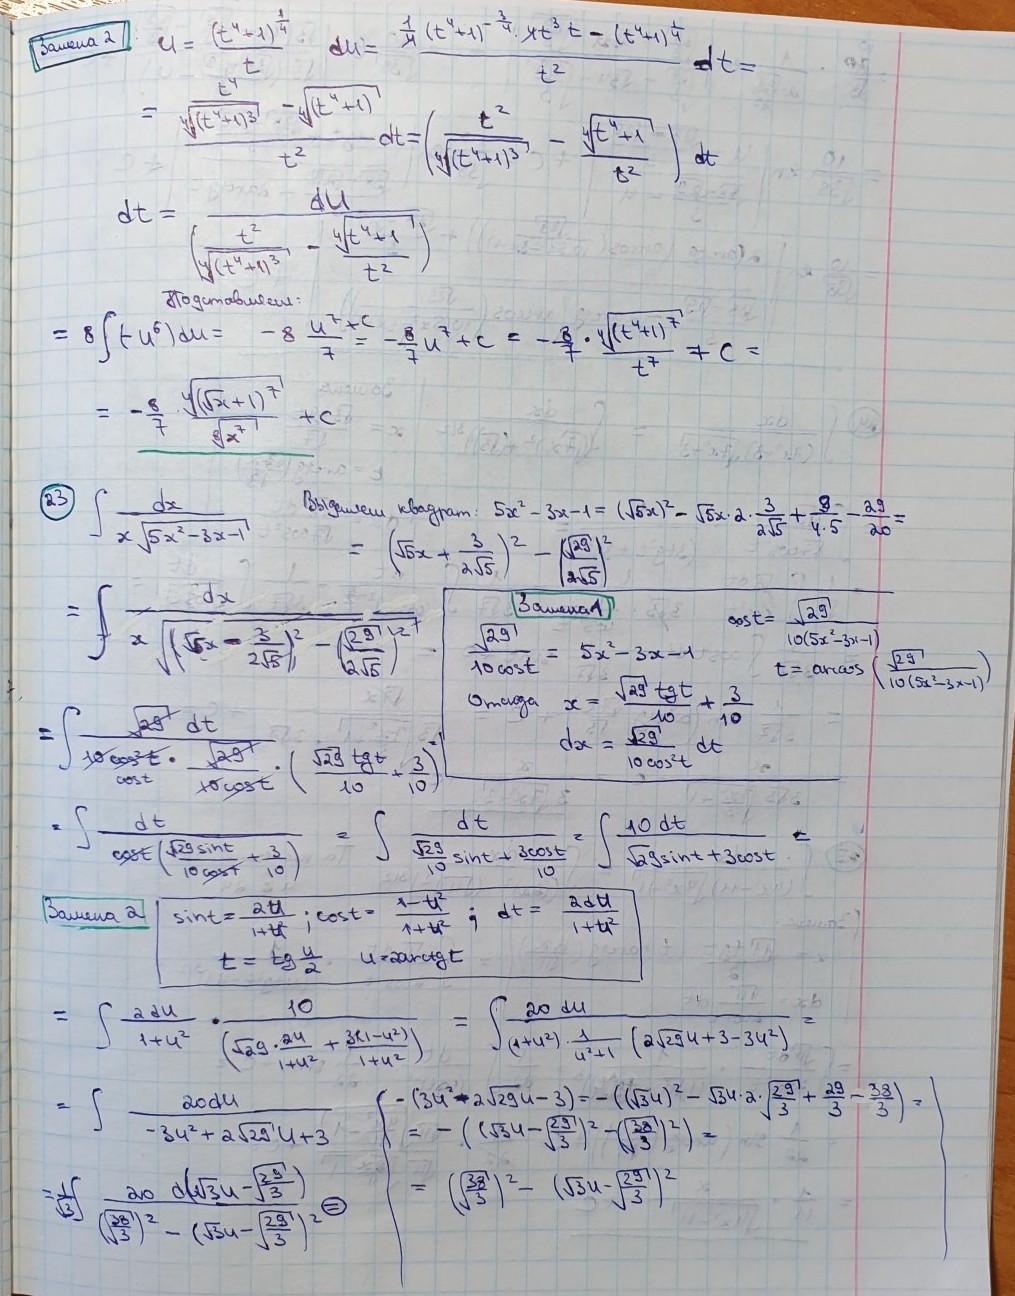 Замена 2 u = (t⁴+1)^(1/4) / t du = (1/4 (t⁴+1)^(-3/4) · 4t³ t − (t⁴+1)^(1/4)) / t² dt =
= (t⁴/⁴√((t⁴+1)³) − ⁴√(t⁴+1)) / t² dt = (t²/⁴√((t⁴+1)³) − ⁴√(t⁴+1)/t²) dt
dt = du / (t²/⁴√((t⁴+1)³) − ⁴√(t⁴+1)/t²)
Подставляем:
= 8∫(-u⁶)du = -8 u⁷/7 + c = -8/7 u⁷ + c = -8/7 · ⁴√((t⁴+1)⁷)/t⁷ + C =
= -8/7 · ⁴√((√x+1)⁷)/⁸√(x⁷) + c
23 ∫ dx / (x√(5x²-3x-1)) Выделяем квадрат: 5x²-3x-1 = (√5x)² - √5x·2·3/(2√5) + 9/(4·5) - 29/20 =
= (√5x + 3/(2√5))² − (√29/(2√5))²
= ∫ dx / (x√((√5x − 3/(2√5))² − (√29/(2√5))²))
Замена 1
√29/(10cost) = 5x²-3x-1 cost = √29/(10(5x²-3x-1))
t = arccos(√29/(10(5x²-3x-1)))
Отсюда x = √29 tgt/10 + 3/10
dx = √29/(10cos²t) dt
= ∫ √29 dt / (10cos²t · √29/(10cost) · (√29 tgt/10 + 3/10)) =
cost
= ∫ dt / (cost(√29 sint/(10cost) + 3/10)) = ∫ dt / (√29/10 sint + 3cost/10) = ∫ 10dt / (√29sint + 3cost) =
Замена 2 sint = 2u/(1+u²) ; cost = (1-u²)/(1+u²) ; dt = 2du/(1+u²)
t = tg u/2 u = 2arctgt
= ∫ 2du/(1+u²) · 10/(√29 · 2u/(1+u²) + 3(1-u²)/(1+u²)) = ∫ 20du / ((1+u²) · 1/(u²+1) (2√29u + 3 − 3u²)) =
= ∫ 20du / (-3u² + 2√29 u + 3)
-(3u² - 2√29u - 3) = -((√3u)² - √3u·2·√(29/3) + 29/3 - 38/3) =
= -((√3u - √(29/3))² - (√(38/3))²) =
= (√(38/3))² - (√3u - √(29/3))²
= 1/√3 ∫ 20 d(√3u - √(29/3)) / ((√(38/3))² − (√3u − √(29/3))²) =